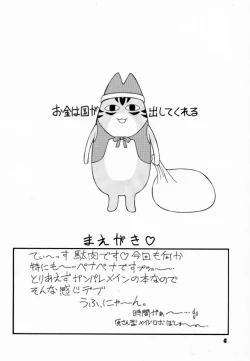 お金は国が出してくれる
まえがき♡
てぃ〜っす 駄肉です♡今回も何か
特にも〜ペナペナですブゥ〜
とりあえずガンパレメインの本なので
そんな感じデブ
うふ、にゃーん。
時間がぁ〜